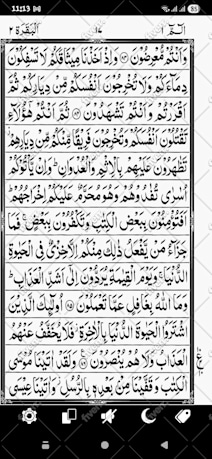 11:13
55
الٓمّٓ ١
١٧
اَلْبَقَرَة ٢
وَاَنْتُمْ مُّعْرِضُوْنَ ۝ وَاِذْ اَخَذْنَا مِيْثَاقَكُمْ لَا تَسْفِكُوْنَ
دِمَآءَكُمْ وَلَا تُخْرِجُوْنَ اَنْفُسَكُمْ مِّنْ دِيَارِكُمْ ثُمَّ
اَقْرَرْتُمْ وَاَنْتُمْ تَشْهَدُوْنَ ۝ ثُمَّ اَنْتُمْ هٰٓؤُلَآءِ
تَقْتُلُوْنَ اَنْفُسَكُمْ وَتُخْرِجُوْنَ فَرِيْقًا مِّنْكُمْ مِّنْ دِيَارِهِمْ
تَظٰهَرُوْنَ عَلَيْهِمْ بِالْاِثْمِ وَالْعُدْوَانِ ؕ وَاِنْ يَّاْتُوْكُمْ
اُسٰرٰى تُفٰدُوْهُمْ وَهُوَ مُحَرَّمٌ عَلَيْكُمْ اِخْرَاجُهُمْ ؕ
اَفَتُؤْمِنُوْنَ بِبَعْضِ الْكِتٰبِ وَتَكْفُرُوْنَ بِبَعْضٍ ۚ فَمَا
جَزَآءُ مَنْ يَّفْعَلُ ذٰلِكَ مِنْكُمْ اِلَّا خِزْيٌ فِى الْحَيٰوةِ
الدُّنْيَا ۚ وَيَوْمَ الْقِيٰمَةِ يُرَدُّوْنَ اِلٰٓى اَشَدِّ الْعَذَابِ ؕ
وَمَا اللّٰهُ بِغَافِلٍ عَمَّا تَعْمَلُوْنَ ۝ اُولٰٓئِكَ الَّذِيْنَ
اشْتَرَوُا الْحَيٰوةَ الدُّنْيَا بِالْاٰخِرَةِ ۫ فَلَا يُخَفَّفُ عَنْهُمُ
الْعَذَابُ وَلَا هُمْ يُنْصَرُوْنَ ۝ وَلَقَدْ اٰتَيْنَا مُوْسَى
الْكِتٰبَ وَقَفَّيْنَا مِنْۢ بَعْدِهٖ بِالرُّسُلِ ؗ وَاٰتَيْنَا عِيْسَى